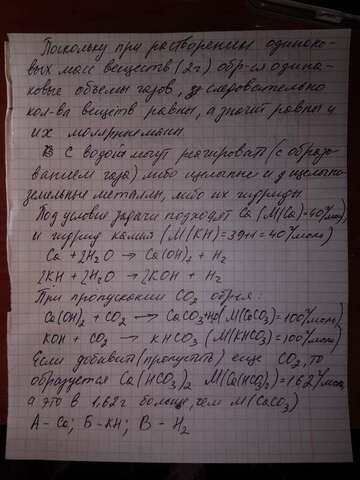 Поскольку при растворении одинако-
вых масс веществ (2г) обр-ся одина-
ковые объемы газов, следовательно
кол-ва веществ равны, а значит равны и
их молярные массы.
В С водой могут реагировать (с образо-
ванием газа) либо щелочные и щелочно-
земельные металлы, либо их гидриды.
Под условие задачи подходят Ca (M(Ca)=40г/моль)
и гидрид калия (M(KH)=39+1=40г/моль)
Ca + 2H2O → Ca(OH)2 + H2
2KH + 2H2O → 2KOH + H2
При пропускании CO2 обр-я:
Ca(OH)2 + CO2 → CaCO3 + H2O (M(CaCO3)=100г/моль)
KOH + CO2 → KHCO3 (M(KHCO3)=100г/моль)
Если добавить (пропустить) еще CO2, то
образуется Ca(HCO3)2 M(Ca(HCO3)2)=162г/моль,
а это в 1,62г больше, чем M(CaCO3)
А - Ca; Б - KH; В - H2